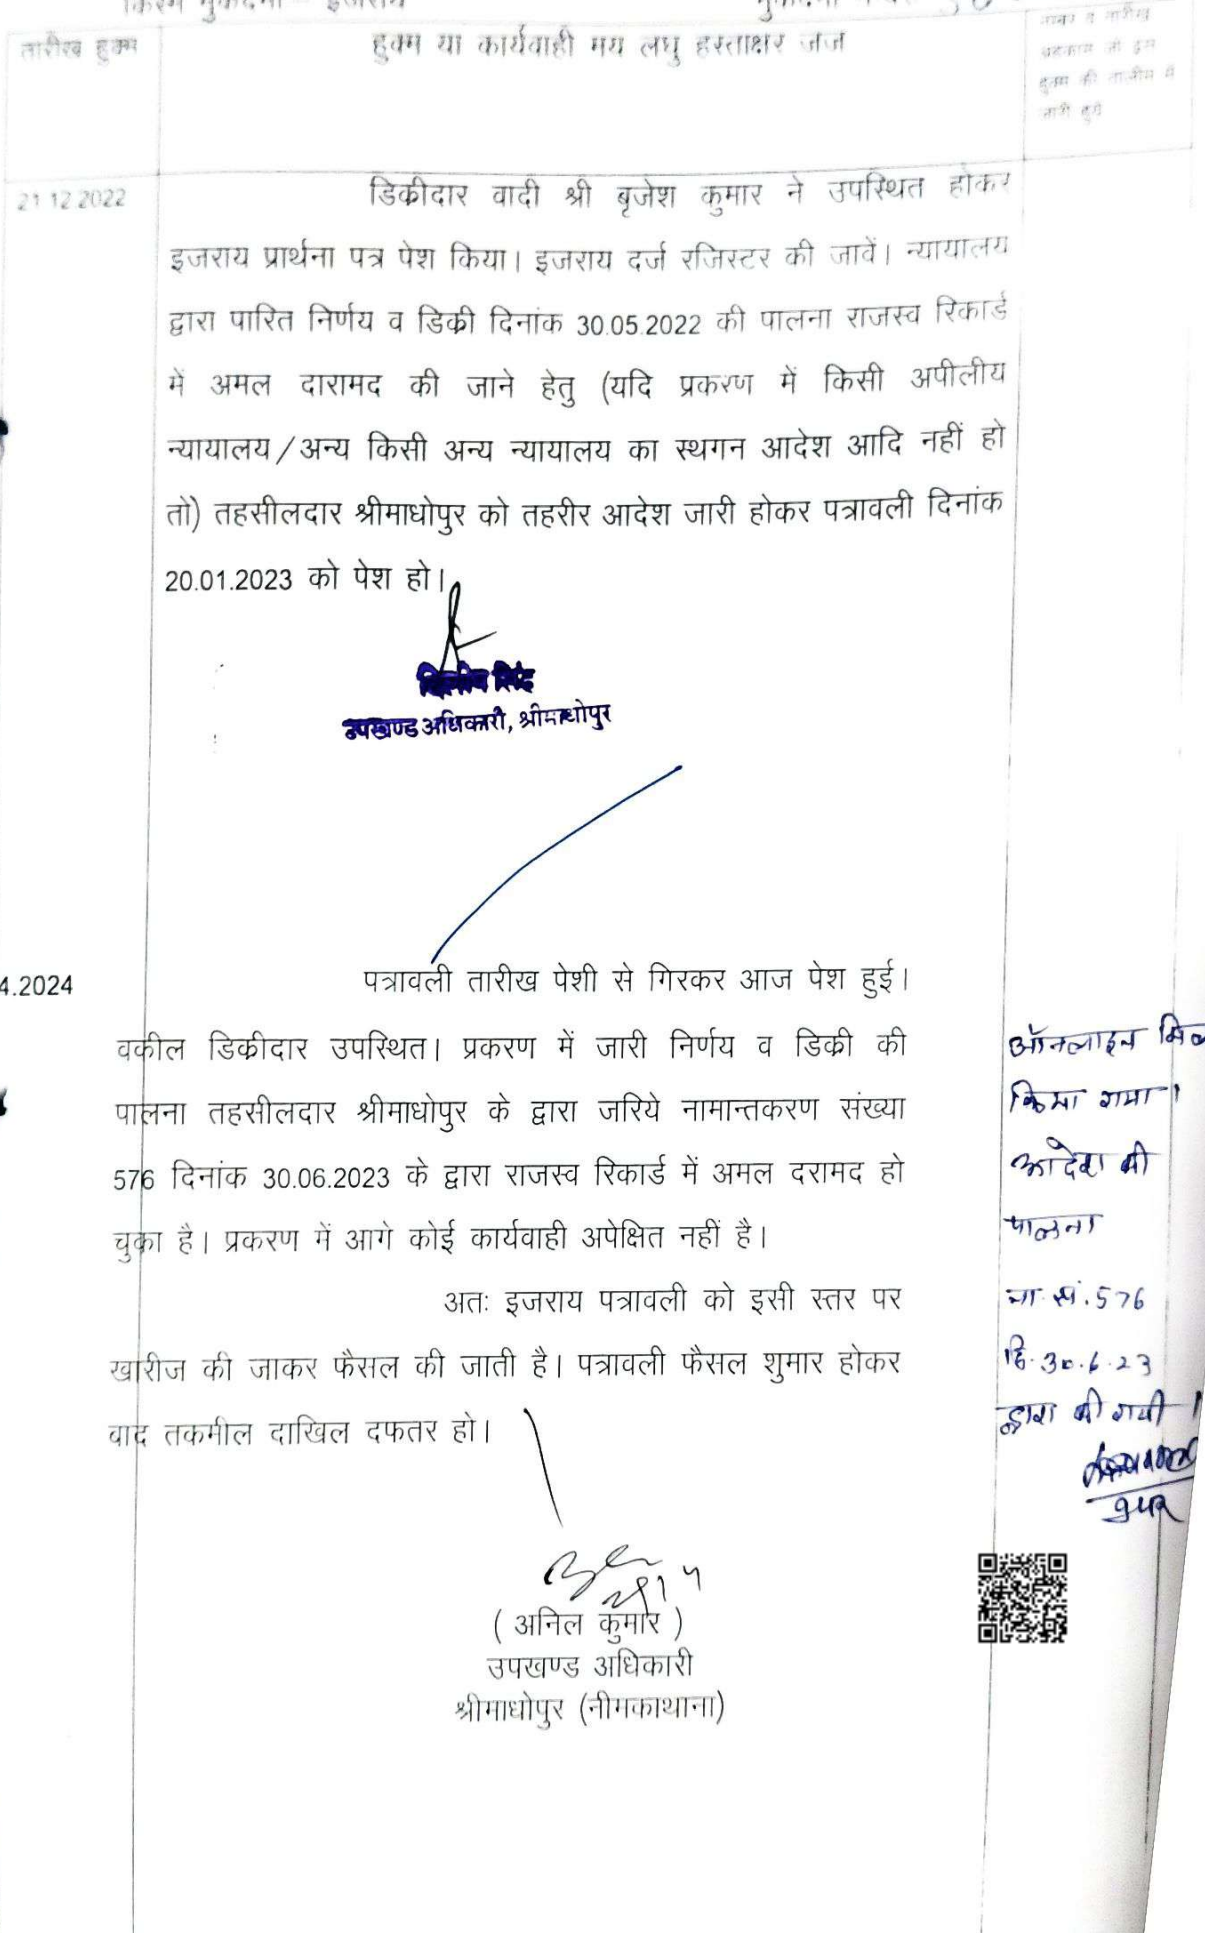 किस्म मुकदमा – इजराय
तारीख हुक्म
हुक्म या कार्यवाही मय लघु हस्ताक्षर जज
नम्बर व तारीख
अहकाम जो इस
हुक्म की तामील में
जारी हुये
21.12.2022
डिकीदार वादी श्री बृजेश कुमार ने उपस्थित होकर
इजराय प्रार्थना पत्र पेश किया। इजराय दर्ज रजिस्टर की जावें। न्यायालय
द्वारा पारित निर्णय व डिकी दिनांक 30.05.2022 की पालना राजस्व रिकार्ड
में अमल दारामद की जाने हेतु (यदि प्रकरण में किसी अपीलीय
न्यायालय/अन्य किसी अन्य न्यायालय का स्थगन आदेश आदि नहीं हो
तो) तहसीलदार श्रीमाधोपुर को तहरीर आदेश जारी होकर पत्रावली दिनांक
20.01.2023 को पेश हो।
उपखण्ड अधिकारी, श्रीमाधोपुर
4.2024
पत्रावली तारीख पेशी से गिरकर आज पेश हुई।
वकील डिकीदार उपस्थित। प्रकरण में जारी निर्णय व डिकी की
पालना तहसीलदार श्रीमाधोपुर के द्वारा जरिये नामान्तकरण संख्या
576 दिनांक 30.06.2023 के द्वारा राजस्व रिकार्ड में अमल दरामद हो
चुका है। प्रकरण में आगे कोई कार्यवाही अपेक्षित नहीं है।
अतः इजराय पत्रावली को इसी स्तर पर
खारीज की जाकर फैसल की जाती है। पत्रावली फैसल शुमार होकर
वाद तकमील दाखिल दफतर हो।
ऑनलाइन
किया गया।
आदेश की
पालना
ना. सं. 576
दि. 30.6.23
द्वारा की गयी।
( अनिल कुमार )
उपखण्ड अधिकारी
श्रीमाधोपुर (नीमकाथाना)